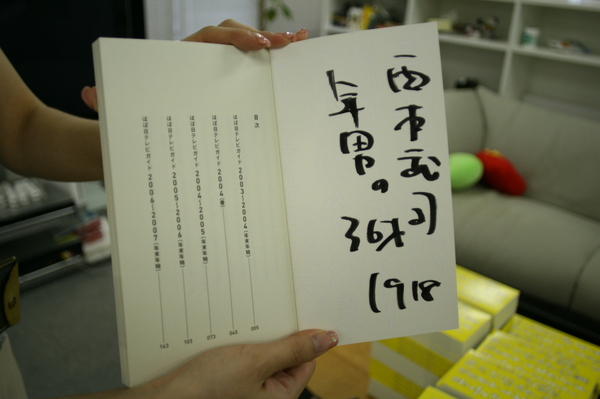 西本武司
年男の
1918
目次
ほぼ日テレビガイド 2003〜2004 [年末年始] 005
ほぼ日テレビガイド 2004 [春] 043
ほぼ日テレビガイド 2004〜2005 [年末年始] 073
ほぼ日テレビガイド 2005〜2006 [年末年始] 103
ほぼ日テレビガイド 2006〜2007 [年末年始] 143